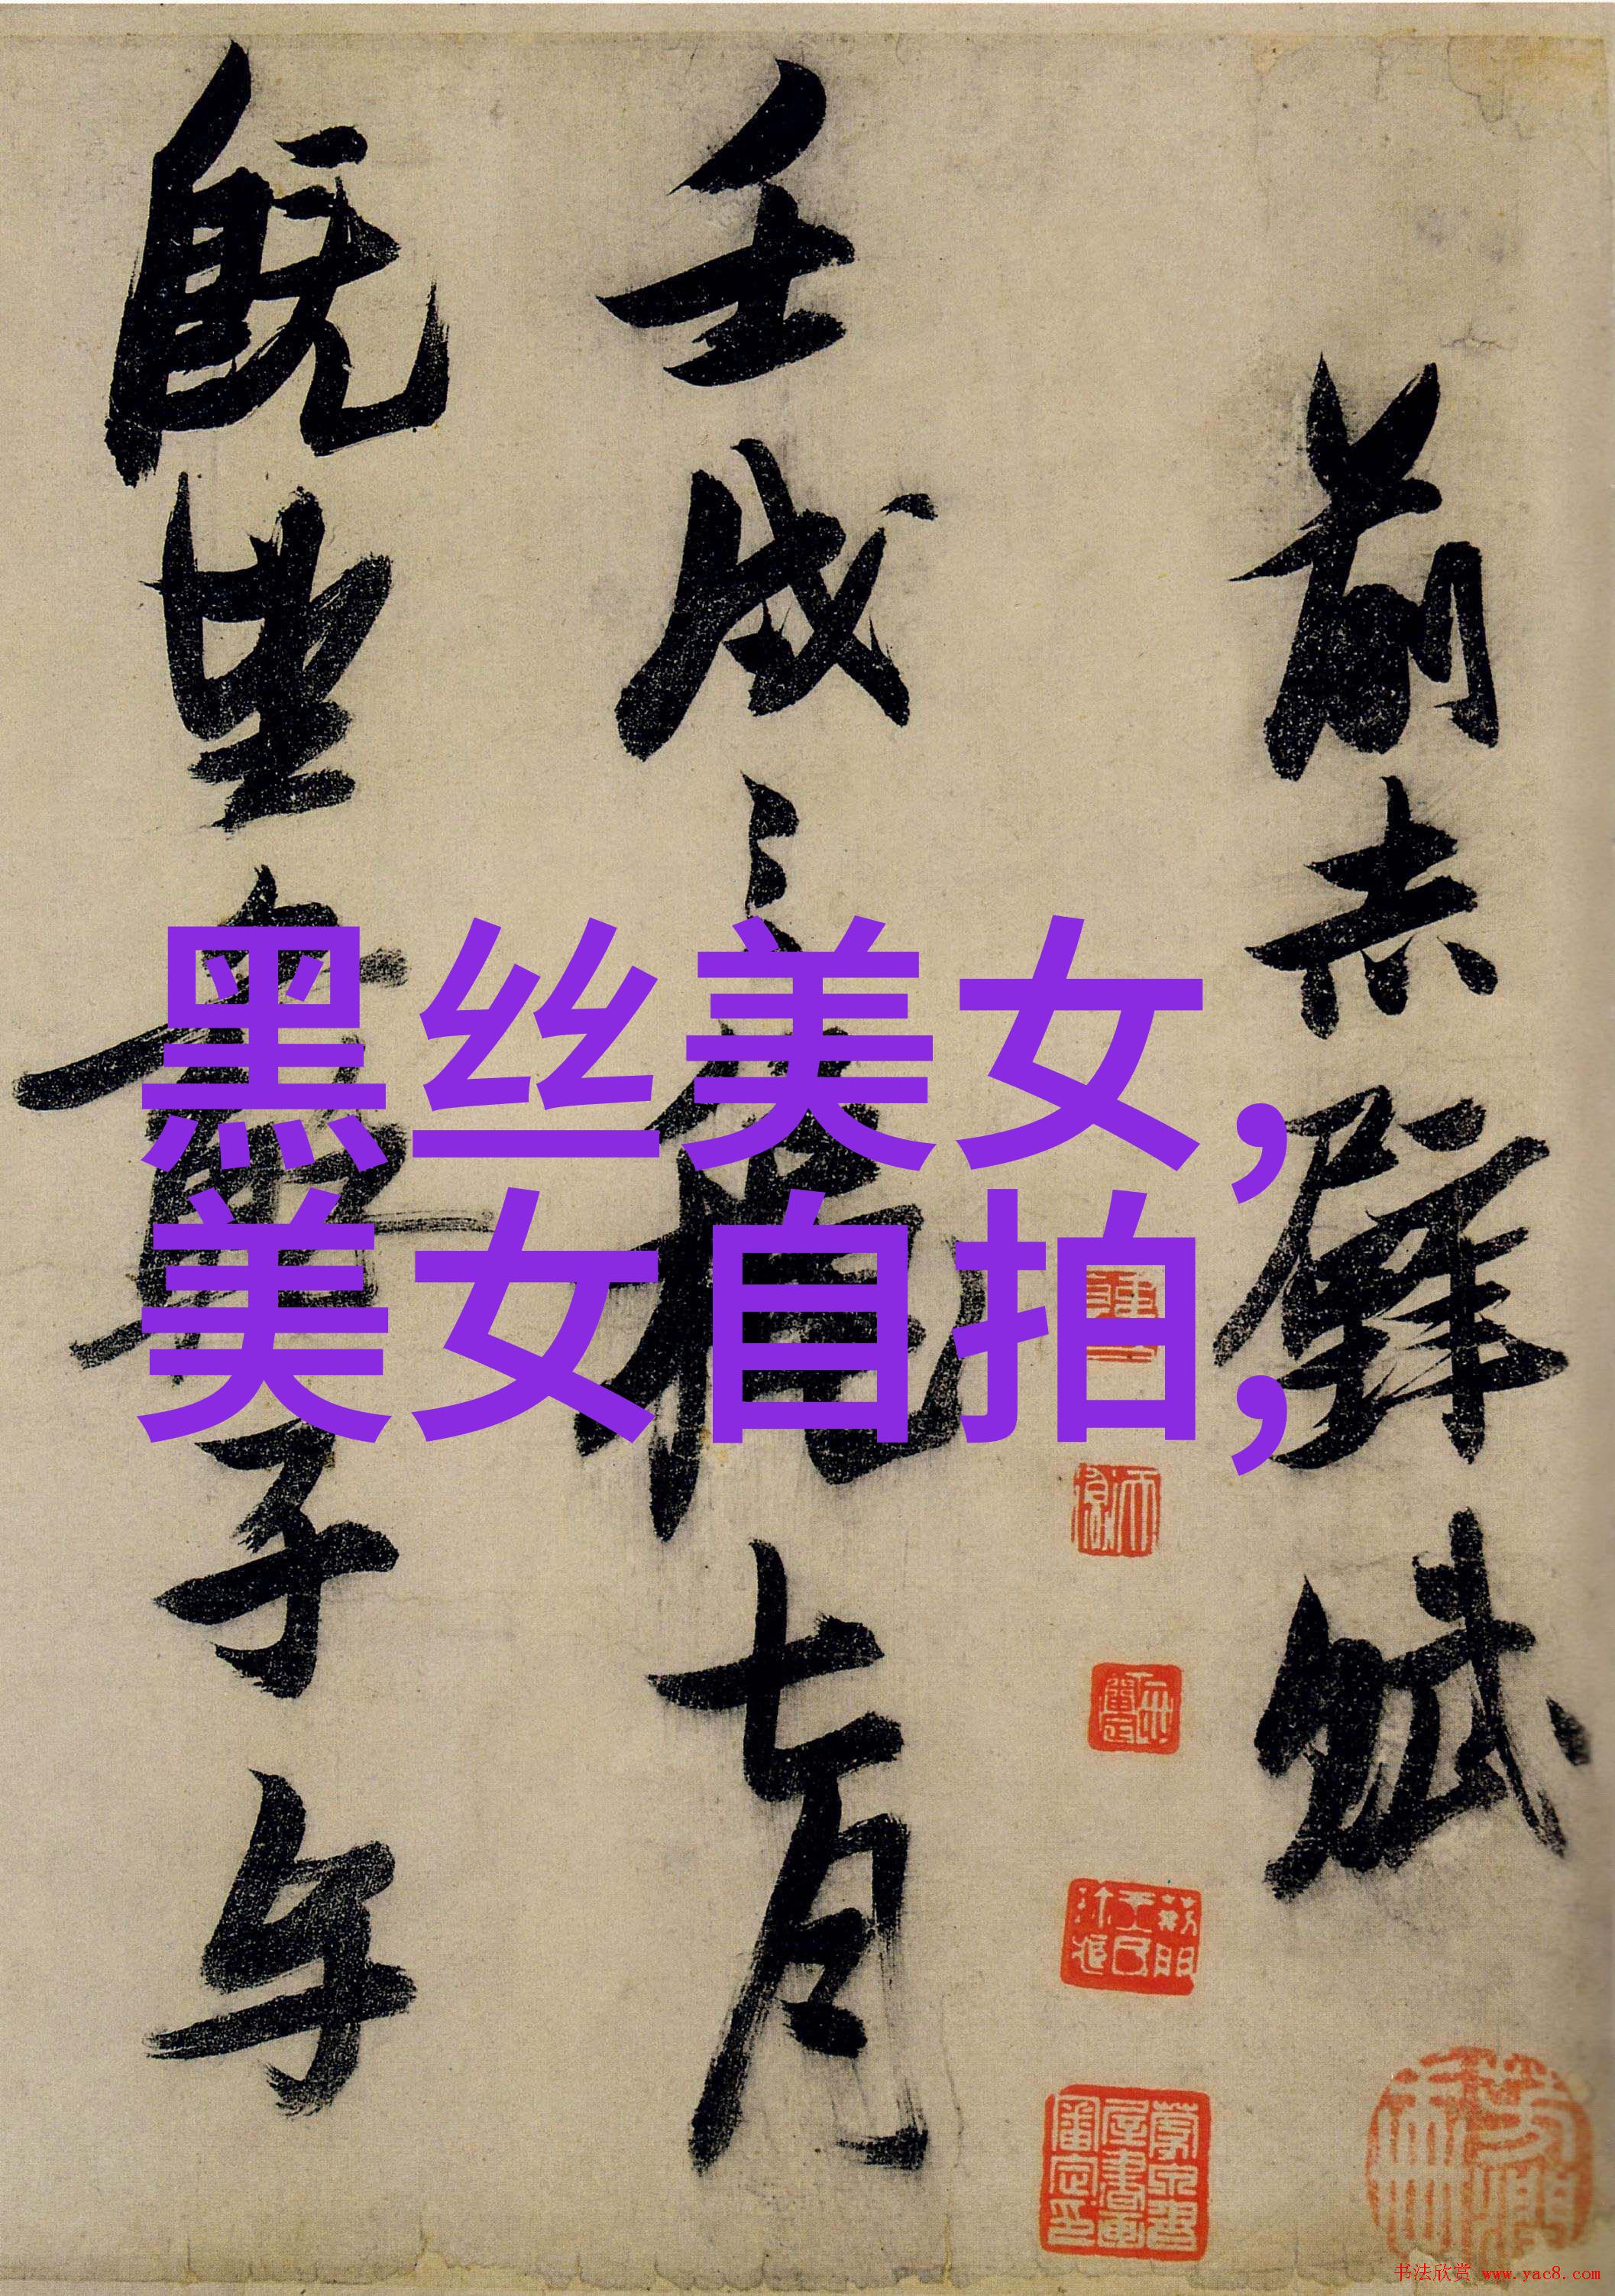 前赤壁賦
壬戌之秋七月
既望蘇子与
黑丝美女,
美女自拍,
书法欣赏 www.yac8.com